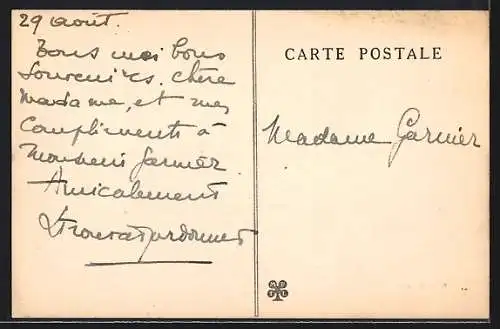 29 août.
Tous mes bons
Souvenirs. chère
Madame, et mes
Compliments à
Monsieur Garnier
Amicalement
CARTE POSTALE
Madame Garnier